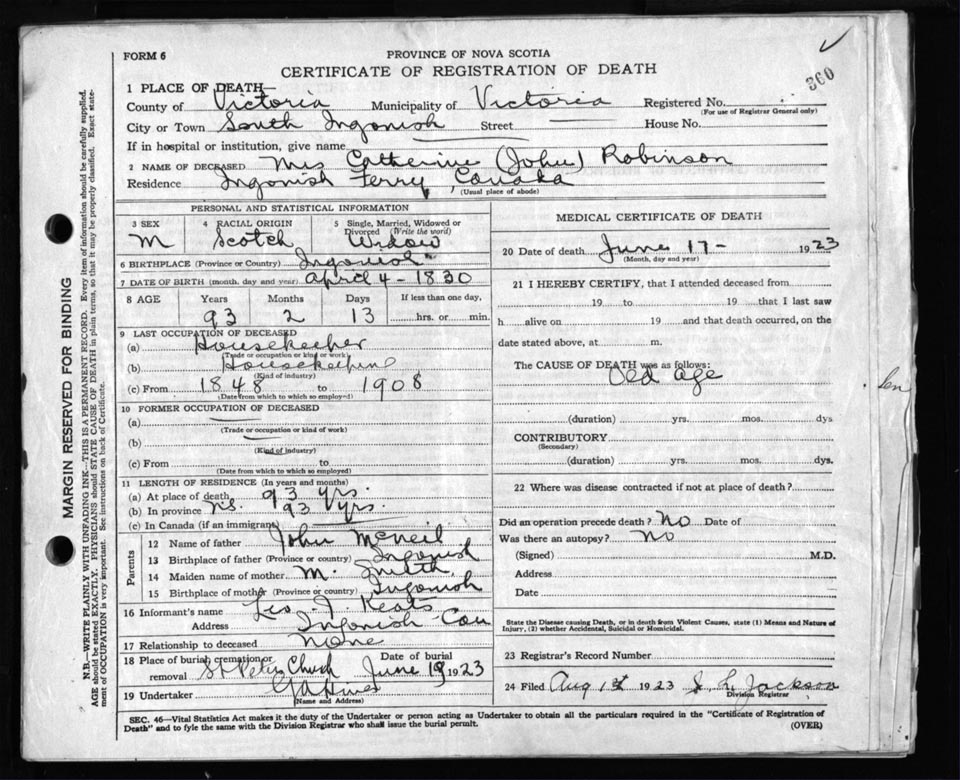 FORM 6
PROVINCE OF NOVA SCOTIA
CERTIFICATE OF REGISTRATION OF DEATH
360
1 PLACE OF DEATH—
County of Victoria Municipality of Victoria Registered No.
(For use of Registrar General only)
City or Town South Ingonish Street House No.
If in hospital or institution, give name
2 NAME OF DECEASED Mrs Catherine (John) Robinson
Residence Ingonish Ferry, Canada
(Usual place of abode)
PERSONAL AND STATISTICAL INFORMATION
3 SEX 4 RACIAL ORIGIN 5 Single, Married, Widowed or Divorced (Write the word)
M Scotch Widow
6 BIRTHPLACE (Province or Country) Ingonish
7 DATE OF BIRTH (month, day and year) April 4 - 1830
8 AGE Years Months Days If less than one day,
93 2 13 hrs. or min.
9 LAST OCCUPATION OF DECEASED
(a) Housekeeper
(Trade or occupation or kind of work)
(b) Housekeeping
(Kind of industry)
(c) From 1848 to 1908
(Date from which to which so employed)
10 FORMER OCCUPATION OF DECEASED
(a)
(Trade or occupation or kind of work)
(b)
(Kind of industry)
(c) From to
(Date from which to which so employed)
11 LENGTH OF RESIDENCE (In years and months)
(a) At place of death 93 yrs.
(b) In province NS. 93 yrs.
(c) In Canada (if an immigrant)
Parents
12 Name of father John McNeil
13 Birthplace of father (Province or country) Ingonish
14 Maiden name of mother M. Smith
15 Birthplace of mother (Province or country) Ingonish
16 Informant's name Leo J. Keats
Address Ingonish Cou
17 Relationship to deceased None
18 Place of burial cremation or removal St Peter Church Date of burial June 19 1923
19 Undertaker
(Name and Address)
MEDICAL CERTIFICATE OF DEATH
20 Date of death June 17- 1923
(Month, day and year)
21 I HEREBY CERTIFY, that I attended deceased from
19 to 19 that I last saw
h alive on 19 and that death occurred, on the
date stated above, at m.
The CAUSE OF DEATH was as follows:
Old age
(duration) yrs. mos. dys
CONTRIBUTORY
(Secondary)
(duration) yrs. mos. dys.
22 Where was disease contracted if not at place of death?
Did an operation precede death? No Date of
Was there an autopsy? No
(Signed) M.D.
Address
Date
State the Disease causing Death, or in death from Violent Causes, state (1) Means and Nature of
Injury, (2) whether Accidental, Suicidal or Homicidal.
23 Registrar's Record Number
24 Filed Aug 1st 1923 J. L. Jackson
Division Registrar
Sen
SEC. 46—Vital Statistics Act makes it the duty of the Undertaker or person acting as Undertaker to obtain all the particulars required in the "Certificate of Registration of
Death" and to fyle the same with the Division Registrar who shall issue the burial permit. (OVER)
MARGIN RESERVED FOR BINDING
N.B.—WRITE PLAINLY WITH UNFADING INK—THIS IS A PERMANENT RECORD. Every item of information should be carefully supplied.
AGE should be stated EXACTLY. PHYSICIANS should STATE CAUSE OF DEATH in plain terms, so that it may be properly classified. Exact state-
ment of OCCUPATION is very important. See instructions on back of Certificate.